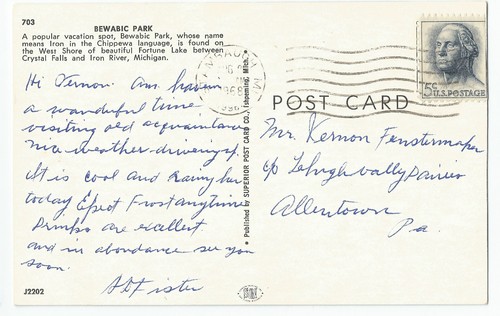 703
BEWABIC PARK
A popular vacation spot, Bewabic Park, whose name
means Iron in the Chippewa language, is found on
the West Shore of beautiful Fortune Lake between
Crystal Falls and Iron River, Michigan.
Hi Vernon. Am haven
a wonderful time
visiting old acquaintance
nice weather driving up.
It is cool and Rainy here
today Expect Frost anytime
are excellent
and in abundance see you
soon.
J2202
Published by SUPERIOR POST CARD CO. Ishpeming, Mich.
POST CARD
5c
U.S. POSTAGE
Mr. Vernon Fenstermaker
c/o Lehigh vally Dairies
Allentown
Pa.